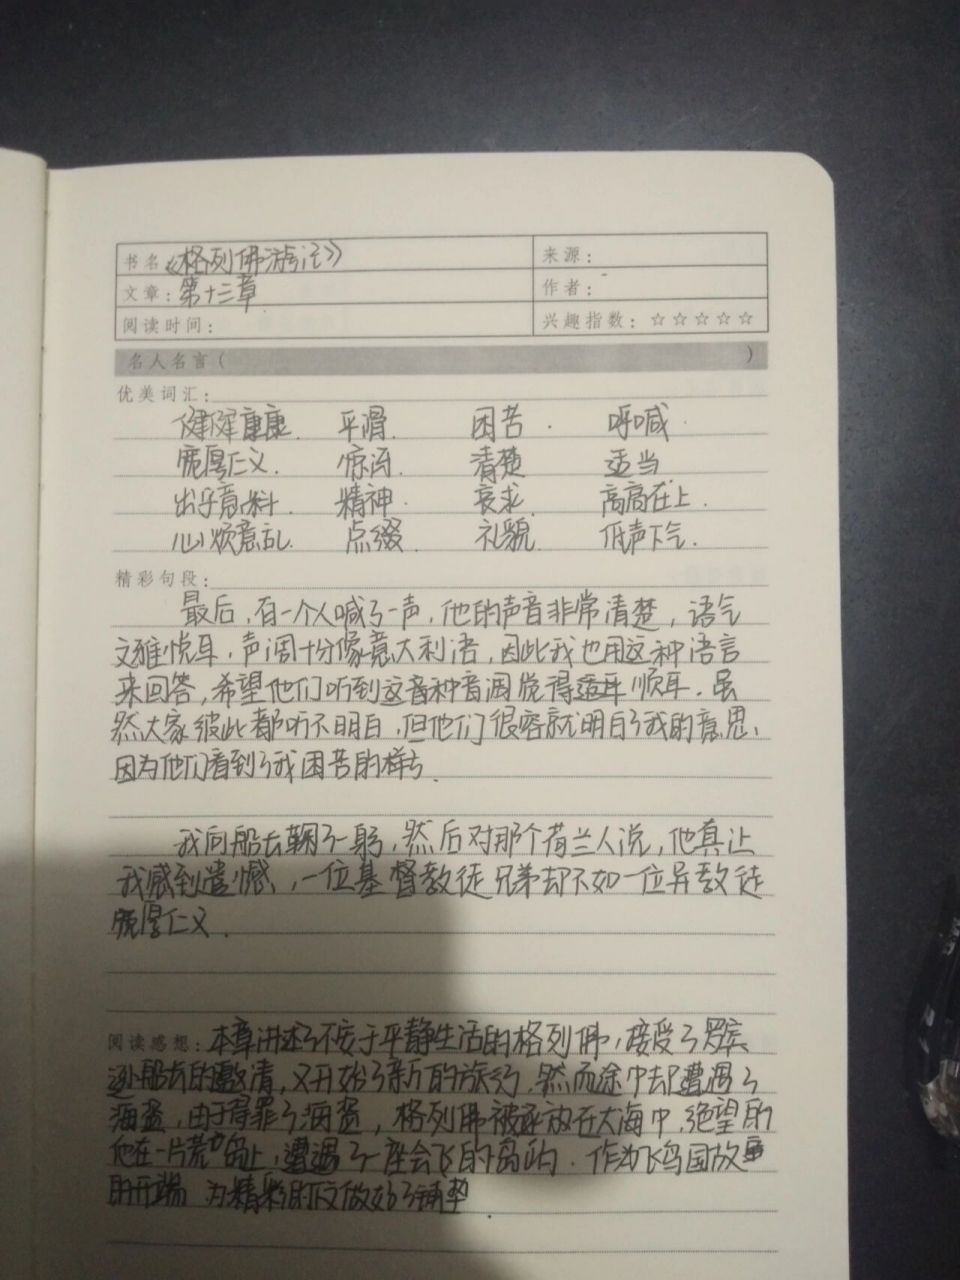 书名《格列佛游记》 来源：
文章：第十三章 作者：
阅读时间： 兴趣指数：☆☆☆☆☆
名人名言（ ）
优美词汇：
健健康康. 平滑. 困苦. 呼喊.
宽厚仁义. 惊讶. 清楚 适当
出乎意料 精神. 哀求. 高高在上.
心烦意乱. 点缀. 礼貌. 低声下气.
精彩句段：
最后，有一个人喊了一声，他的声音非常清楚，语气
文雅悦耳，声调十分像意大利语，因此我也用这种语言
来回答，希望他们听到这音种音调觉得适耳顺耳. 虽
然大家彼此都听不明白，但他们很容就明白了我的意思，
因为他们看到了我困苦的样子.
我向船长鞠了一躬，然后对那个荷兰人说，他真让
我感到遗憾，一位基督教徒兄弟却不如一位异教徒
宽厚仁义.
阅读感想：本章讲述了不安于平静生活的格列佛，接受了罗宾
逊船长的邀请，又开始了新的旅行，然而途中却遭遇了
海盗，由于得罪了海盗，格列佛被逐放在大海中，绝望的
他在一片荒岛上，遭遇了一座会飞的岛屿. 作为飞岛国故事
的开端 为精彩的下文做好了铺垫.